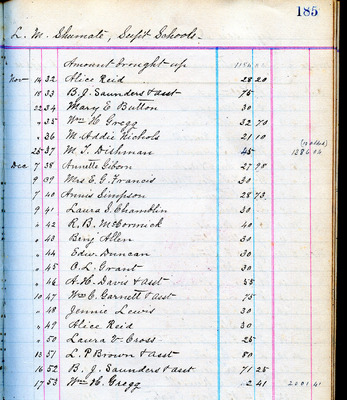 185
L. M. Shumate, Supt Schools.
Amount brought up
Nov 14 32 Alice Reid 28 20
18 33 B. J. Saunders & asst 75
22 34 Mary E Button 30
" 35 Wm H Gregg 32 70
" 36 M Addie Nichols 21 10
25 37 M. T. Dishman 45 1286 06
Dec 7 38 Annette Gibson 27 98
9 39 Mrs E. G. Francis 30
7 40 Annis Simpson 28 73
9 41 Laura S. Chamblin 30
" 42 R. B. McCormick 40
" 43 Benj Allen 30
" 44 Edw. Duncan 30
" 45 C. L. Grant 30
" 46 A. H. Davis & asst 55
10 47 Wm C. Garnett & asst 75
" 48 Jennie Lewis 30
" 49 Alice Reid 30
" 50 Laura V. Cross 25
13 51 L. P. Brown & asst 80
16 52 B. J. Saunders & asst 71 25
17 53 Wm H. Gregg 2 41 2001 41